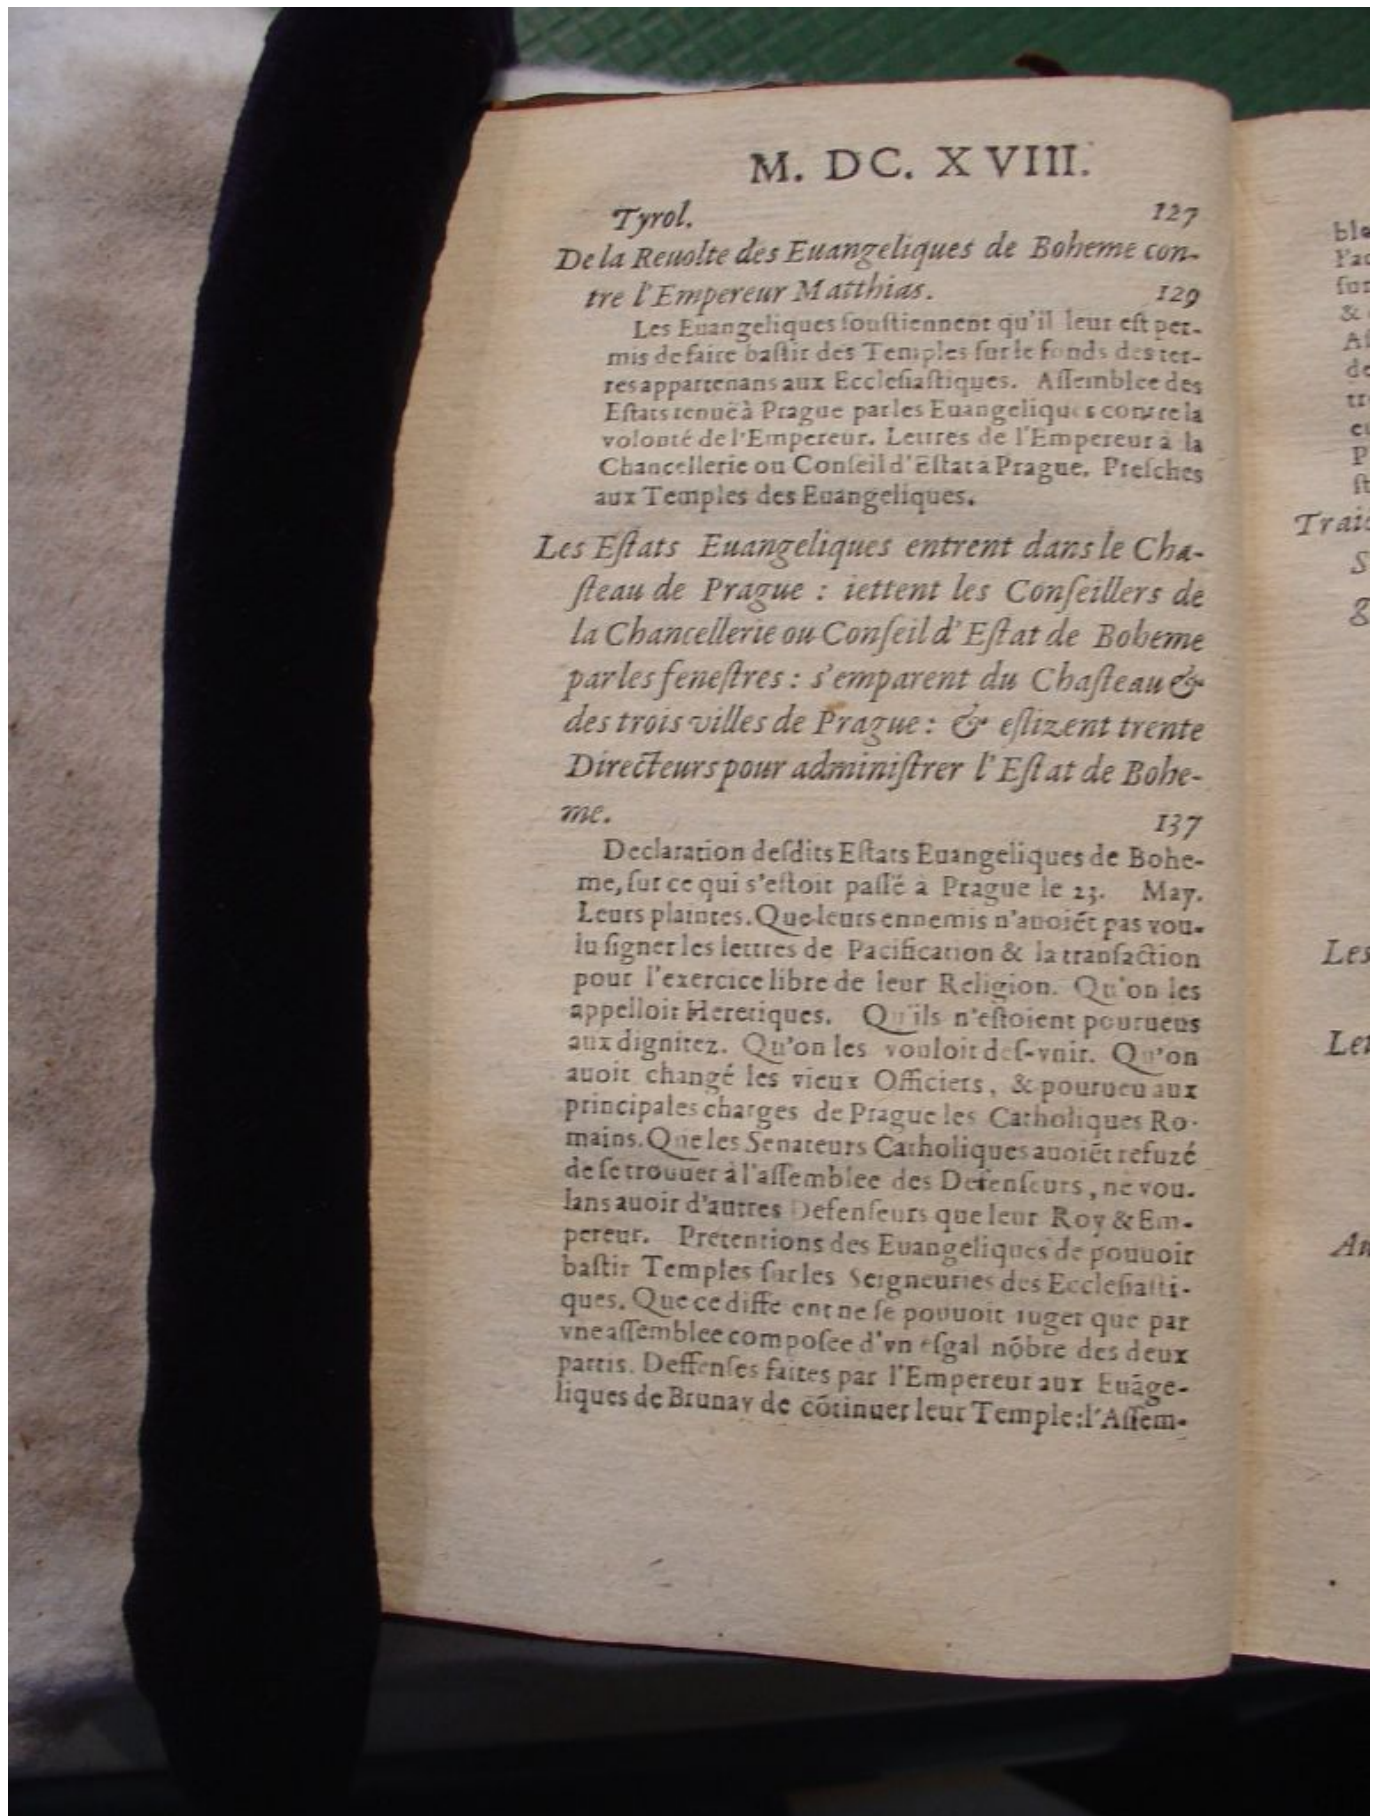 M. DC. XVIII.
Tyrol. 127
De la Reuolte des Euangeliques de Boheme con-
tre l'Empereur Matthias. 129
Les Euangeliques souſtiennent qu'il leur eſt per-
mis de faire baſtir des Temples ſur le fonds des ter-
res appartenans aux Eccleſiaſtiques. Aſſemblee des
Eſtats tenuë à Prague par les Euangeliques contre la
volonté de l'Empereur. Lettres de l'Empereur à la
Chancellerie ou Conſeil d'Eſtat à Prague. Preſches
aux Temples des Euangeliques.
Les Eſtats Euangeliques entrent dans le Cha-
ſteau de Prague : iettent les Conſeillers de
la Chancellerie ou Conſeil d'Eſtat de Boheme
par les feneſtres : s'emparent du Chaſteau &
des trois villes de Prague : & eſlizent trente
Directeurs pour adminiſtrer l'Eſtat de Bohe-
me. 137
Declaration deſdits Eſtats Euangeliques de Bohe-
me, ſur ce qui s'eſtoit paſſé à Prague le 23. May.
Leurs plaintes. Que leurs ennemis n'auoiẽt pas vou-
lu ſigner les lettres de Pacification & la tranſaction
pour l'exercice libre de leur Religion. Qu'on les
appelloit Heretiques. Qu'ils n'eſtoient pourueus
aux dignitez. Qu'on les vouloit deſ-vnir. Qu'on
auoit changé les vieux Officiers, & pourueu aux
principales charges de Prague les Catholiques Ro-
mains. Que les Senateurs Catholiques auoiẽt refuzé
de ſe trouuer à l'aſſemblee des Defenſeurs, ne vou-
lans auoir d'autres Defenſeurs que leur Roy & Em-
pereur. Pretentions des Euangeliques de pouuoir
baſtir Temples ſur les Seigneuries des Eccleſiaſti-
ques. Que ce differẽnt ne ſe pouuoit iuger que par
vne aſſemblee compoſee d'vn eſgal nõbre des deux
partis. Deffenſes faites par l'Empereur aux Euãge-
liques de Brunay de cõtinuer leur Temple: l'Aſſem-